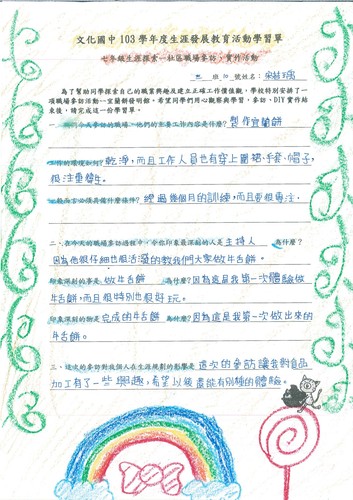 文化國中103學年度生涯發展教育活動學習單
七年級生涯探索—社區職場參訪、實作活動
班 號姓名:
為了幫助同學探索自己的職業興趣及建立正確工作價值觀,學校特別安排了一
項職場參訪活動—宜蘭餅發明館。希望同學們用心觀察與學習,參訪、DIY實作結
束後,請完成這一份學習單。
一、 今天參訪的職場,他們的主要工作內容是什麼?製作宜蘭餅
工作的環境如何?乾淨,而且工作人員也有穿上圍裙、手套、帽子,
很注重衛生。
一般而言必須具備什麼條件?經過幾個月的訓練,而且要很專注.
二、在今天的職場參訪過程中,令你印象最深刻的人是主持人 為什麼?
因為他很仔細也很活潑的教我們大家做牛舌餅。
印象深刻的事是做牛舌餅 為什麼?因為這是我第一次體驗做
牛舌餅,而且很特別也很好玩。
印象深刻的物是完成的牛舌餅 為什麼?因為這是我第一次做出來的
牛舌餅。
三、這次的參訪對我個人在生涯規劃的影響是 這次的參訪讓我對食品
加工有了一些興趣,希望以後還能有別種的體驗。